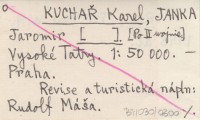 KUCHAŘ Karel, JANKA
Jaromír [ ] [Po II. vojně]
Vysoké Tatry. 1:50 000. -
Praha.
Revise a turistická náplň:
Rudolf Máša.